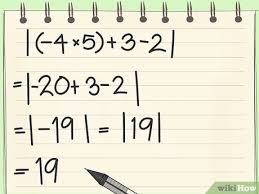 |(-4×5)+3-2|
=|-20+3-2|
=|-19| = |19|
= 19
wikiHow